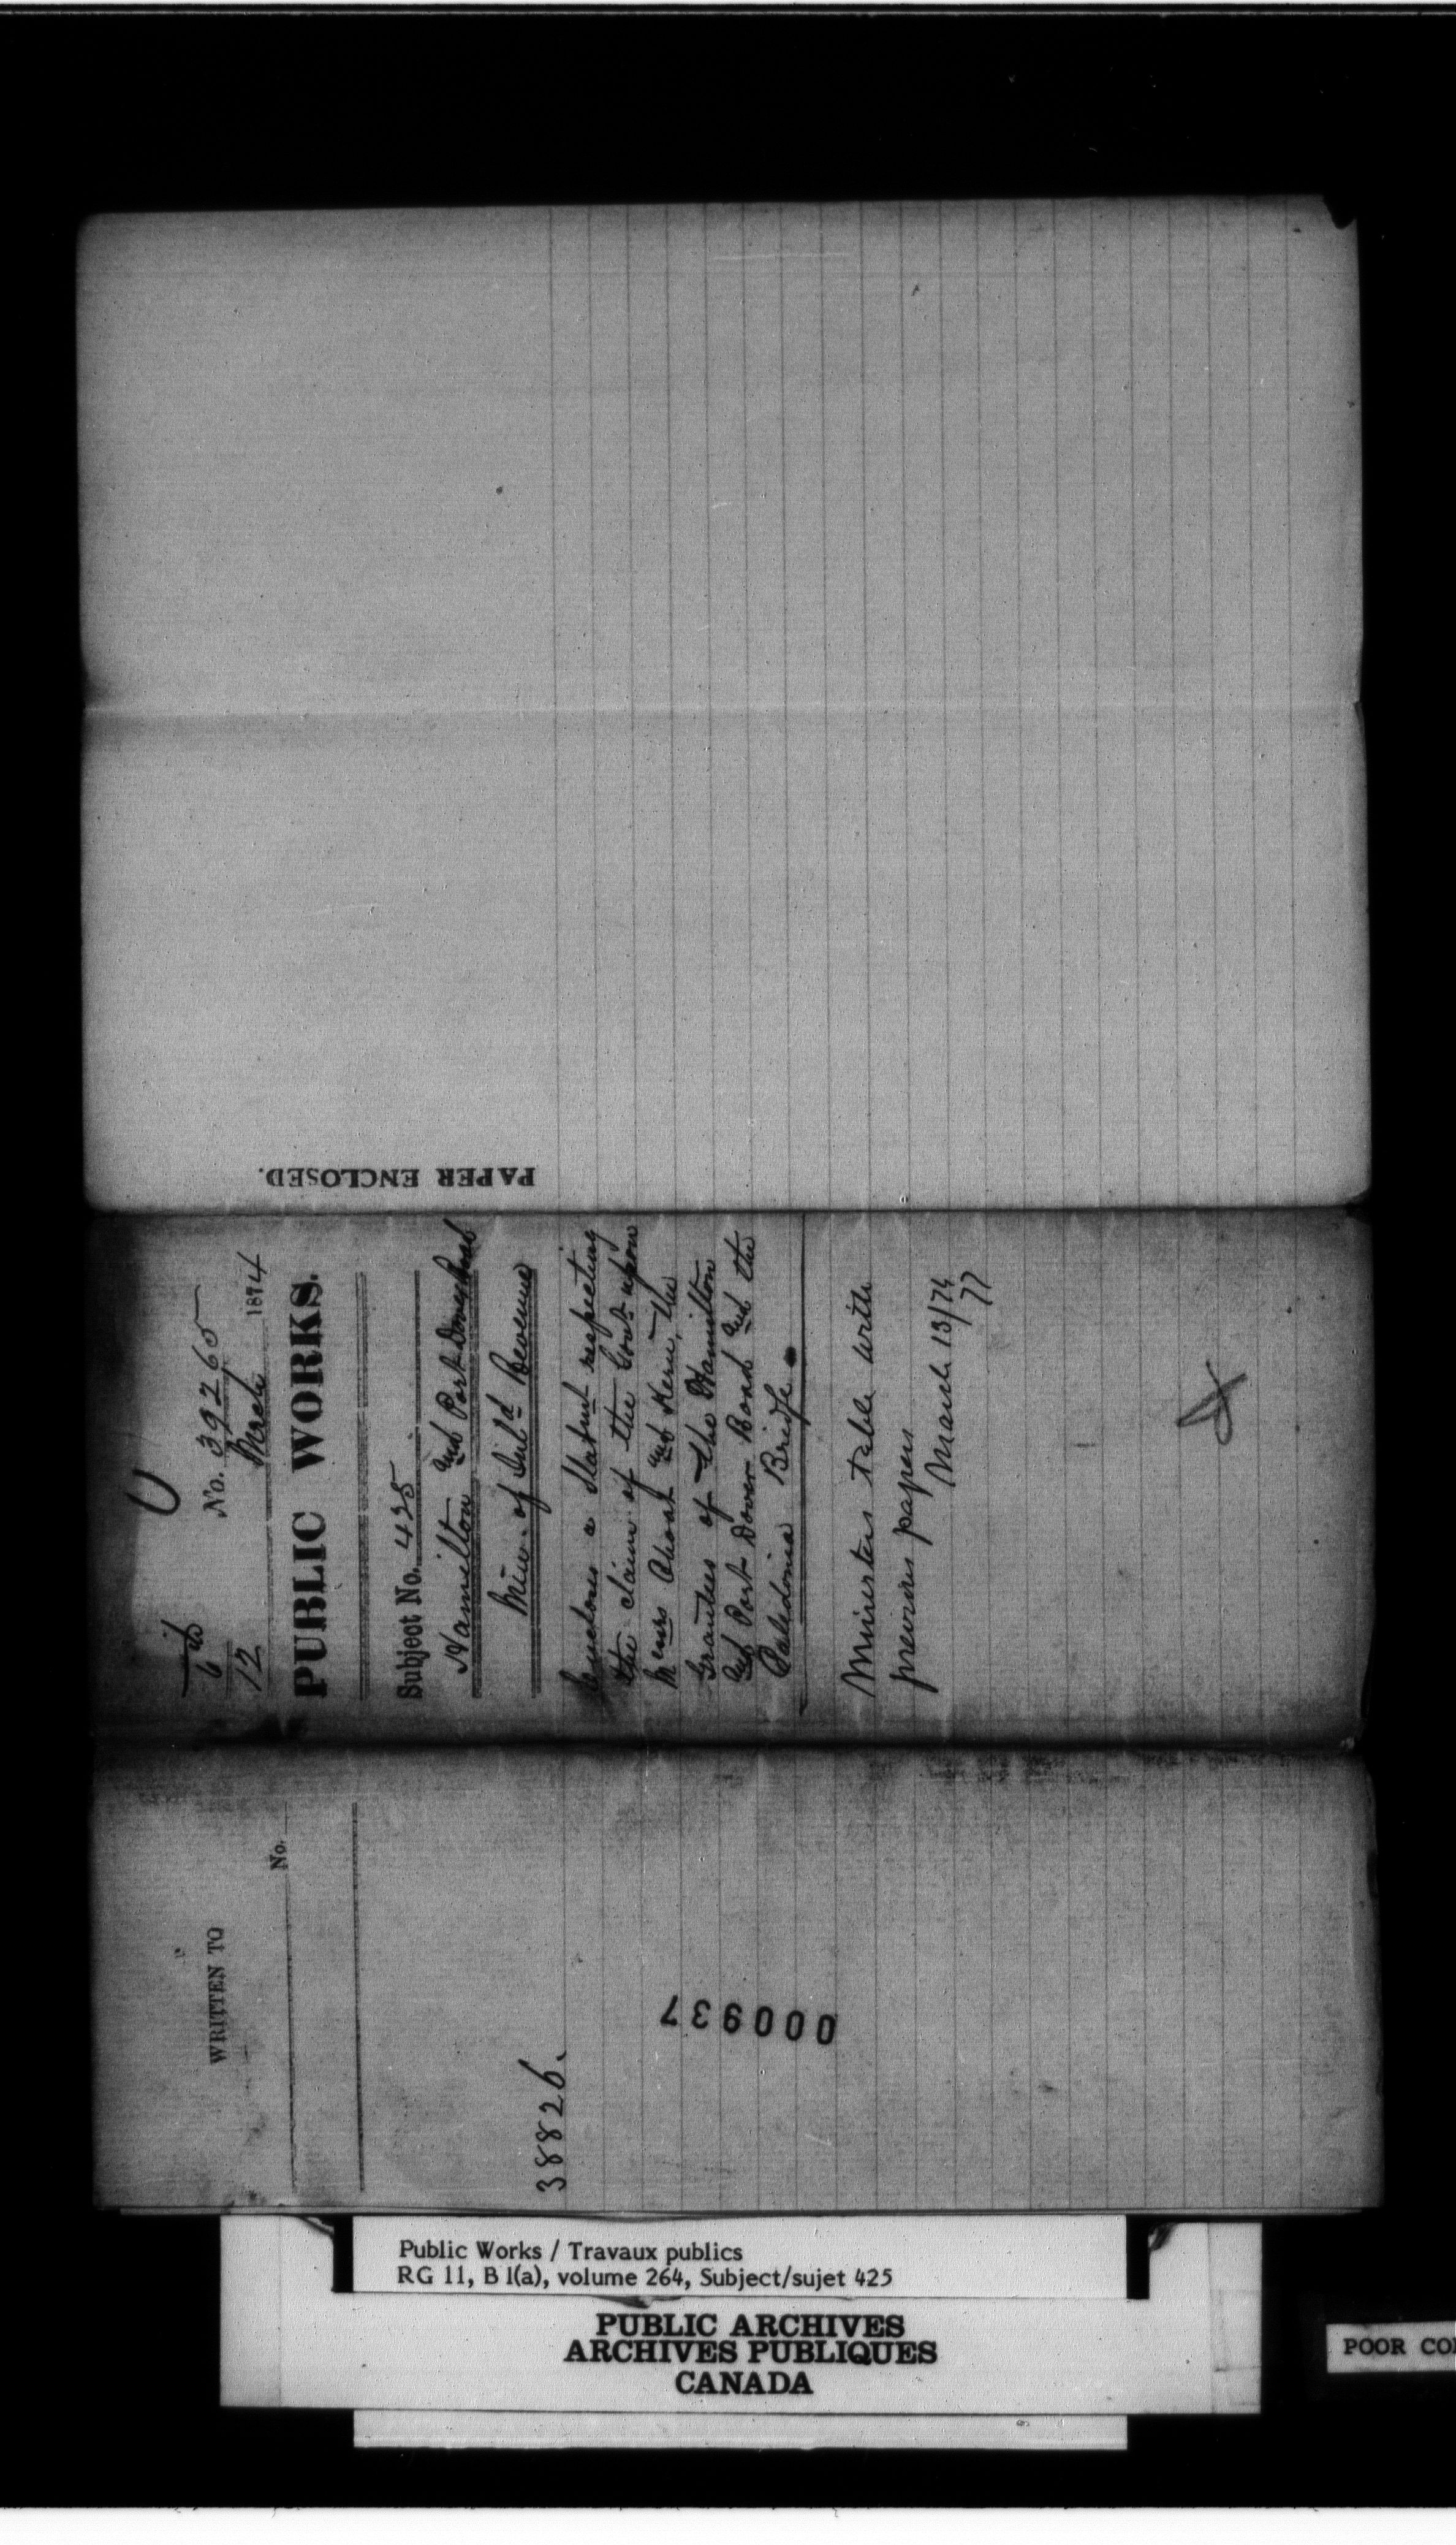 PAPER ENCLOSED.
No. 39265
6th
12 March 1874
PUBLIC WORKS.
Subject No. 425
Hamilton and Port Dover Road
Min. of Inld Revenue
Encloses a Statmt respecting
the claim of the Govt upon
Messrs Choat and Kern, the
Grantees of the Hamilton
and Port Dover Road and the
Caledonia Bridge
Ministers table with
previous papers
March 13/74
77
WRITTEN TO
No.
38826.
000937
Public Works / Travaux publics
RG 11, B 1(a), volume 264, Subject/sujet 425
PUBLIC ARCHIVES
ARCHIVES PUBLIQUES
CANADA
POOR CO